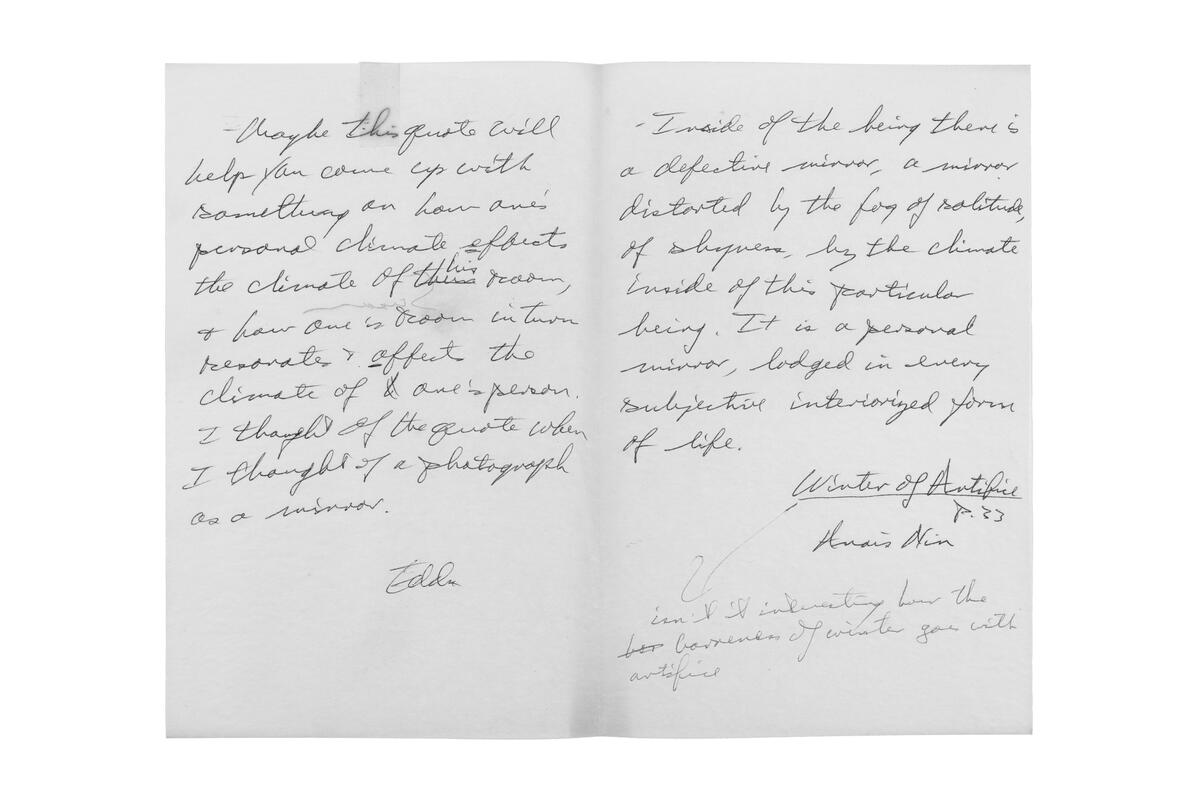 - Maybe this quote will
help you come up with
something on how one's
personal climate effects
the climate of this his room,
& how one's room in turn
resonates & affects the
climate of one's person.
I thought of the quote when
I thought of a photograph
as a mirror.
Edda
- Inside of the being there is
a defective mirror, a mirror
distorted by the fog of solitude,
of shyness, by the climate
inside of this particular
being. It is a personal
mirror, lodged in every
subjective interiorized form
of life.
Winter of Artifice
p. 33
Anais Nin
isn't it interesting how the
bar barreness of winter goes with
artifice